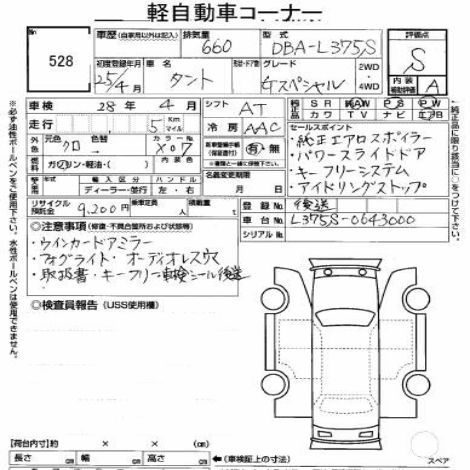 軽自動車コーナー
528
車歴 (自家用以外は記入) 排気量 660 型式 DBA-L375S
評価点 S
初度登録年月 25/4 車名 タント グレード Gスペシャル 2WD・4WD
内装補助評価 A
車検 28年 4月 シフト AT
純正装備品 SR KAW PS PW
カワ TV ナビ エアB
走行 5 Km マイル 冷房 AAC
元色 クロ カラーNo X07
燃料 ガソリン・軽油・( )
輸入区分 ディーラー・並行 ハンドル 左・右
有・無
名義変更期限 月 日
セールスポイント
・純正エアロスポイラー
・パワースライドドア
・キーフリーシステム
・アイドリングストップ
リサイクル預託金 9,200円 乗車定員 人 積載量 t
登録No. 後送
車台No. L375S-0643000
シリアルNo.
◎注意事項 (修復・不具合箇所および状態等)
・ウインカードアミラー
・フォグライト・オーディオレス
・取扱書・キーフリー・車検シール後送
◎検査員報告 (USS使用欄)
※必ず油性ボールペンをご使用下さい。水性ボールペンは使用できません。
純正品に限り該当に○をつけて下さい。
【荷台内寸】 × × (cm)
長さ cm 幅 cm 高さ cm ←(車検証上の寸法)
スペア